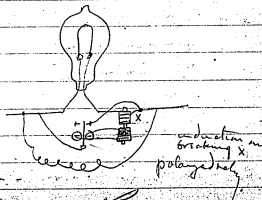 X
induction on
breaking X
polarized relay